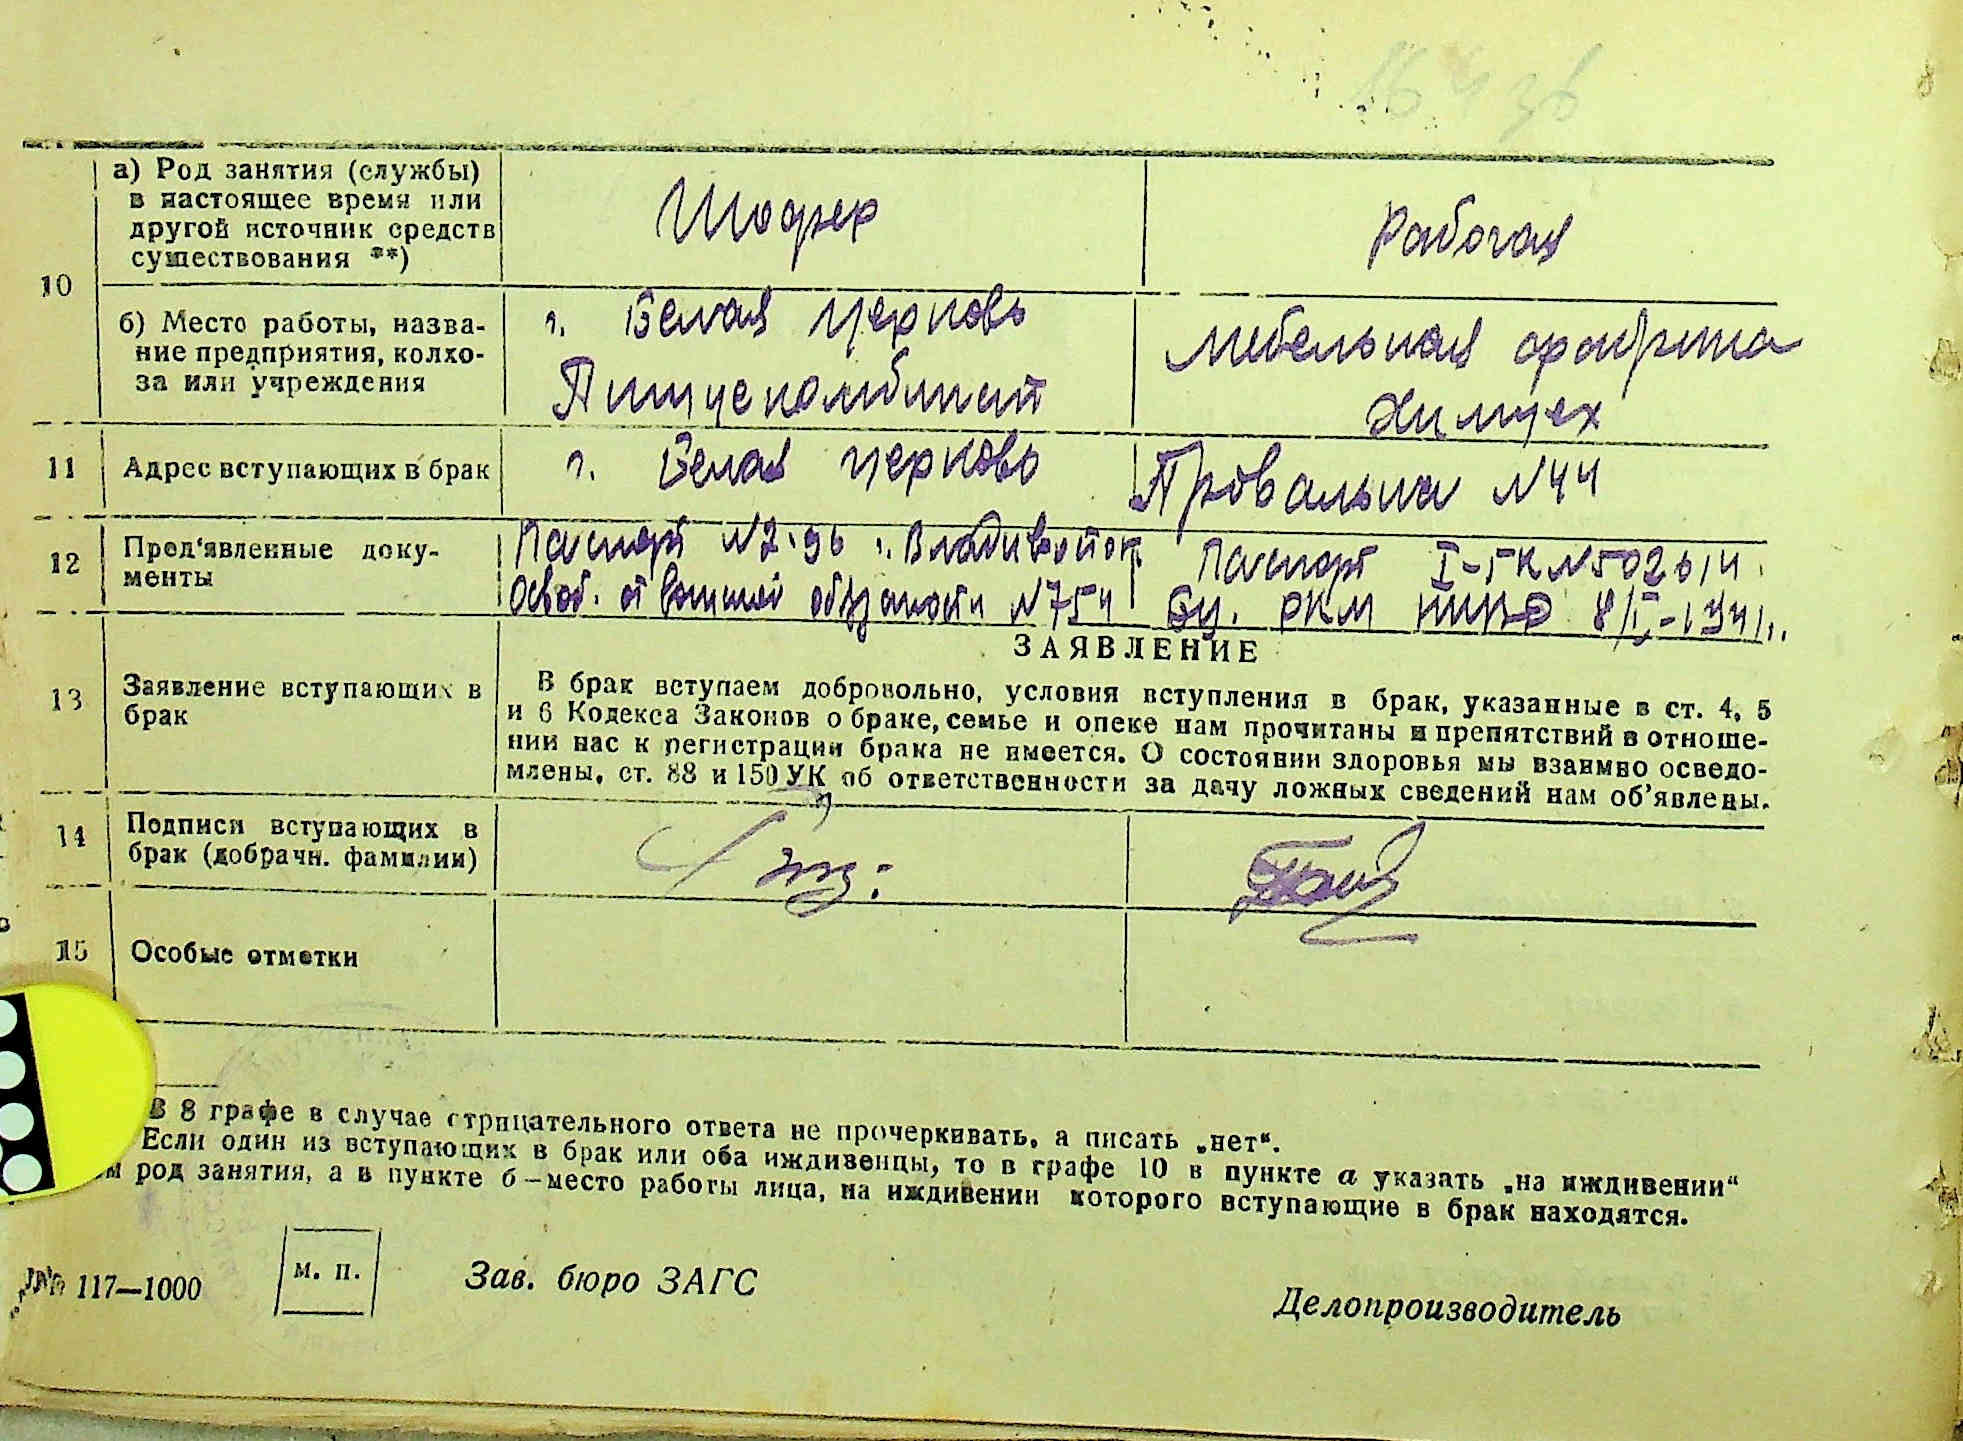 10
а) Род занятия (службы)
в настоящее время или
другой источник средств
существования **)
Шофер
Рабочая
б) Место работы, назва-
ние предприятия, колхо-
за или учреждения
г. Белая церковь
Пищекомбинат
Мебельная фабрика
Химцех
11
Адрес вступающих в брак
г. Белая церковь
Провальна N 44
12
Пред'явленные доку-
менты
Паспорт г. Владивосток
Освоб. от воинской N 754
Паспорт I-ГК N 502614
РКМ 8/I-1941г.
13
Заявление вступающих в
брак
ЗАЯВЛЕНИЕ
В брак вступаем добровольно, условия вступления в брак, указанные в ст. 4, 5
и 6 Кодекса Законов о браке, семье и опеке нам прочитаны и препятствий в отноше-
нии нас к регистрации брака не имеется. О состоянии здоровья мы взаимно осведо-
млены, ст. 88 и 150 УК об ответственности за дачу ложных сведений нам об'явлены.
14
Подписи вступающих в
брак (добрачн. фамилии)
15
Особые отметки
В 8 графе в случае отрицательного ответа не прочеркивать, а писать „нет“.
Если один из вступающих в брак или оба иждивенцы, то в графе 10 в пункте а указать „на иждивении“
род занятия, а в пункте б—место работы лица, на иждивении которого вступающие в брак находятся.
№ 117—1000
м. п.
Зав. бюро ЗАГС
Делопроизводитель